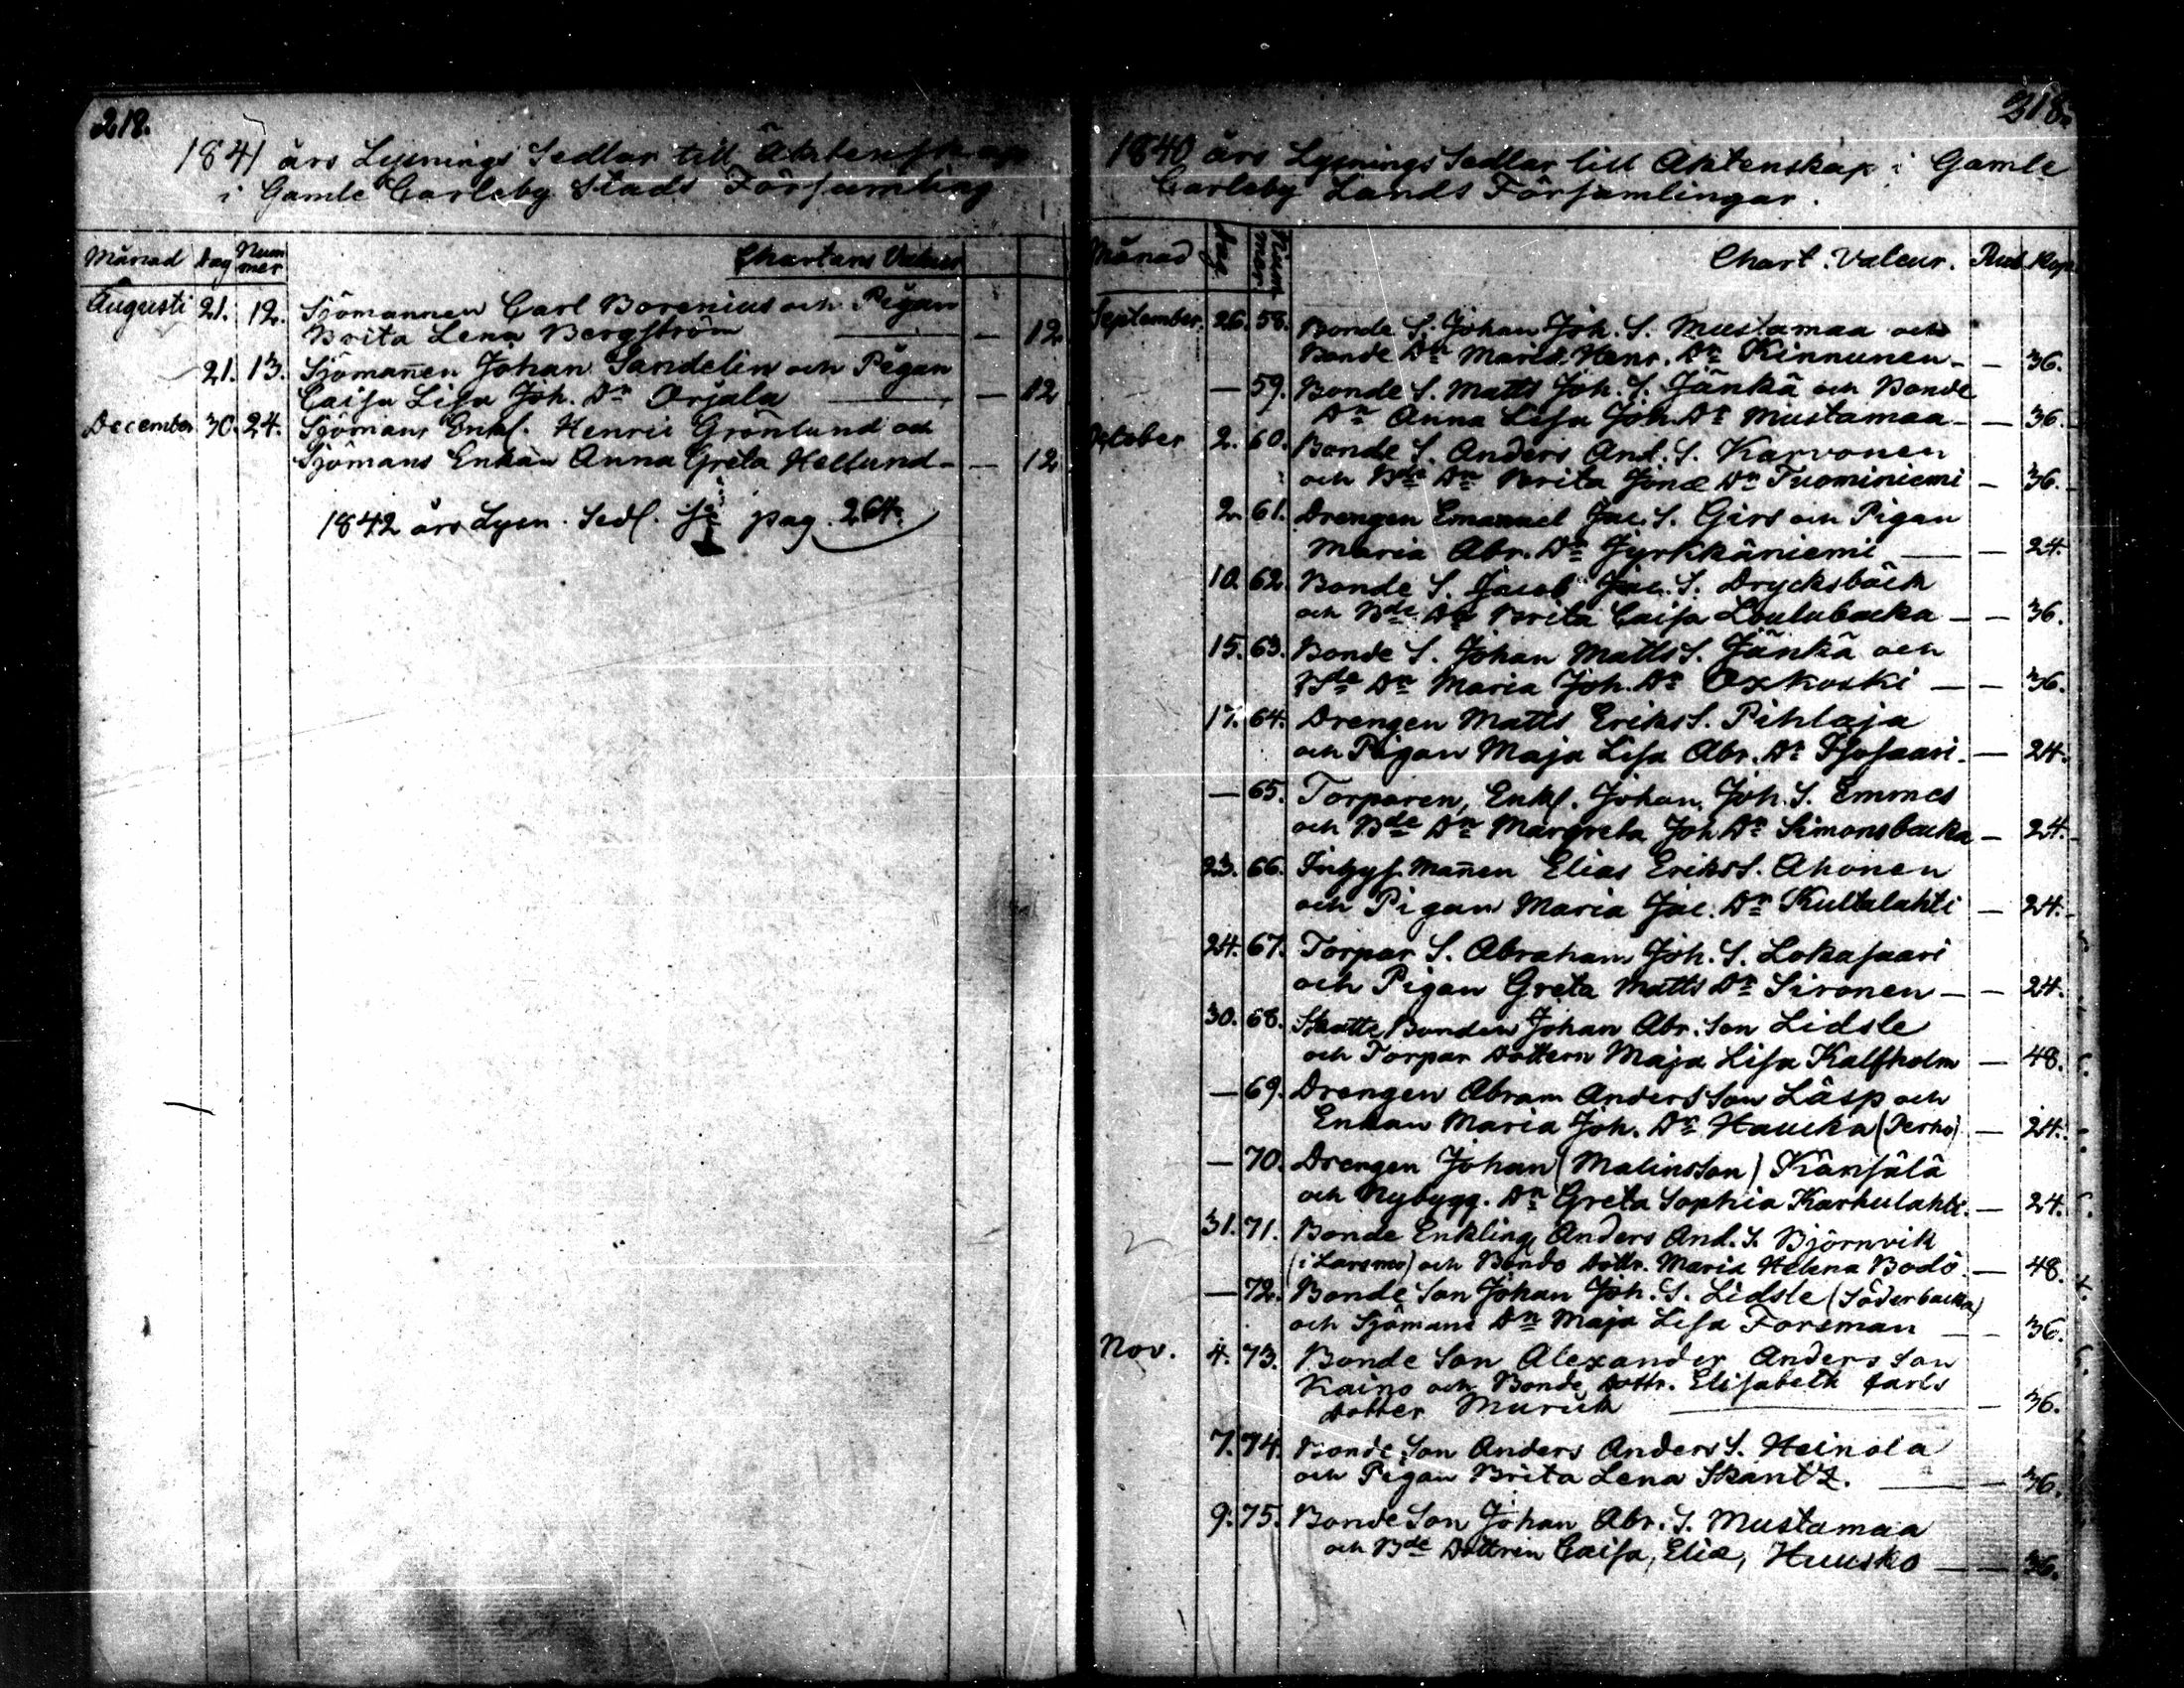 218.
1841 års Lysnings Sedlar till Äktenskap
i Gamle Carleby Stads Församling
Månad Dag Nummer Chartans Valeur
Augusti 21. 12. Sjömannen Carl Borenius och Pigan
Brita Lena Bergström — 12
21. 13. Sjömañen Johan Sandelin och Pigan
Caisa Lisa Joh. Dr Orjala — 12
December 30. 24. Sjömans Enkl. Henric Grönlund och
Sjömans Enkan Anna Greta Hellund — 12
1842 års Lysn. Sedl. pag. 264.
318.
1840 års Lysnings Sedlar till Äktenskap i Gamle
Carleby Lands Församlingar.
Månad Dag Nummer Chart. Valeur. Rub Kop
September. 26. 58. Bonde S. Johan Joh. S. Mustamaa och
Bonde Dr Maria Henr. Dr Kinnunen — 36.
— 59. Bonde S. Matts Joh. S. Jänkä och Bonde
Dr Anna Lisa Joh. Dr Mustamaa — 36.
October 2. 60. Bonde S. Anders And. S. Karvonen
och Bde Dr Brita Jonæ Dr Tuominiemi — 36.
2. 61. Drengen Emanuel Jac. S. Girs och Pigan
Maria Abr. Dr Jyrkkäniemi — 24.
10. 62. Bonde S. Jacob Jac. S. Drycksbäck
och Bde Dr Brita Caisa Loulubacka — 36.
15. 63. Bonde S. Johan Matts S. Jänkä och
Bde Dr Maria Joh. Dr Oxkoski — 36.
17. 64. Drengen Matts Eriks S. Pihlaja
och Pigan Maja Lisa Abr. Dr Isosaari — 24.
— 65. Torparen, Enkl. Johan Joh. S. Emmes
och Bde Dr Margreta Joh Dr Simonsbacka — 24.
23. 66. Inhys. Mañen Elias Eriks S. Ahonen
och Pigan Maria Jac. Dr Kultalahti — 24.
24. 67. Torpar S. Abraham Joh. S. Lokasaari
och Pigan Greta Matts Dr Sironen — 24.
30. 68. Skatte Bonden Johan Abr. Son Lidsle
och Torpar Dottern Maja Lisa Kalfholm — 48.
— 69. Drengen Abram Anders Son Läsp och
Enkan Maria Joh. Dr Haucka (Perho) — 24.
— 70. Drengen Johan (Malins Son) Känsälä
och Nybygg. Dr Greta Sophia Karhulahti — 24.
31. 71. Bonde Enkling Anders And. S. Björnvik
(i Larsmo) och Bonde Dottr. Maria Helena Bodö — 48.
— 72. Bonde Son Johan Joh. S. Lidsle (Söderbacka)
och Sjömans Dr Maja Lisa Forsman — 36.
Nov. 4. 73. Bonde Son Alexander Anders Son
Kaino och Bonde Dottr. Elisabeth Carls
Dotter Murick — 36.
7. 74. Bonde Son Anders Anders S. Heinola
och Pigan Brita Lena Skantz. — 36.
9. 75. Bonde Son Johan Abr. S. Mustamaa
och Bde Dottren Caisa, Eliæ, Huusko — 36.